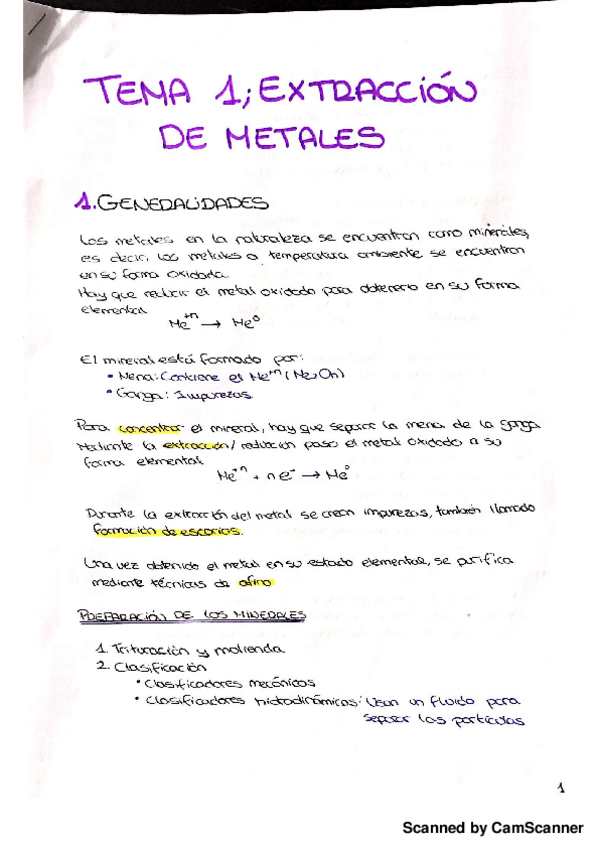 TEMA 1; EXTRACCIÓN
DE METALES
1. GENERALIDADES
Los metales en la naturaleza se encuentran como minerales,
es decir, los metales a temperatura ambiente se encuentran
en su forma oxidada.
Hay que reducir el metal oxidado para obtenerlo en su forma
elemental
Me⁺ⁿ → Me⁰
El mineral está formado por:
• Mena: Contiene el Me⁺ⁿ (Me₂On)
• Ganga: Impurezas
Para concentrar el mineral, hay que separar la mena de la ganga
Mediante la extracción/reducción paso el metal oxidado a su
forma elemental
Me⁺ⁿ + ne⁻ → Me⁰
Durante la extracción del metal se crean impurezas, también llamado
formación de escorias.
Una vez obtenido el metal en su estado elemental, se purifica
mediante técnicas de afino
PREPARACIÓN DE LOS MINERALES
1. Trituración y molienda
2. Clasificación
• Clasificadores mecánicos
• Clasificadores hidrodinámicos: Usan un fluido para
separar las partículas
1
Scanned by CamScanner